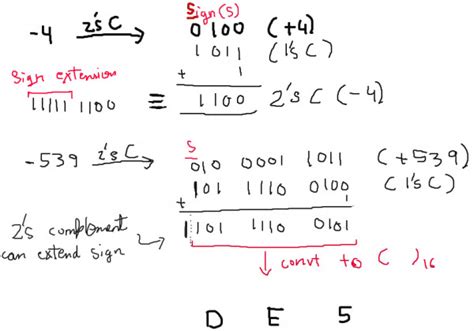 Sign(S)
-4 2'sC 0100 (+4)
1011 (1'sC)
Sign extension + 1
11111 1100 ≡ 1100 2'sC (-4)
S
-539 2'sC 010 0001 1011 (+539)
101 1110 0100 (1'sC)
+ 1
2's complement 1101 1110 0101
can extend sign
convt to ( )16
D E 5